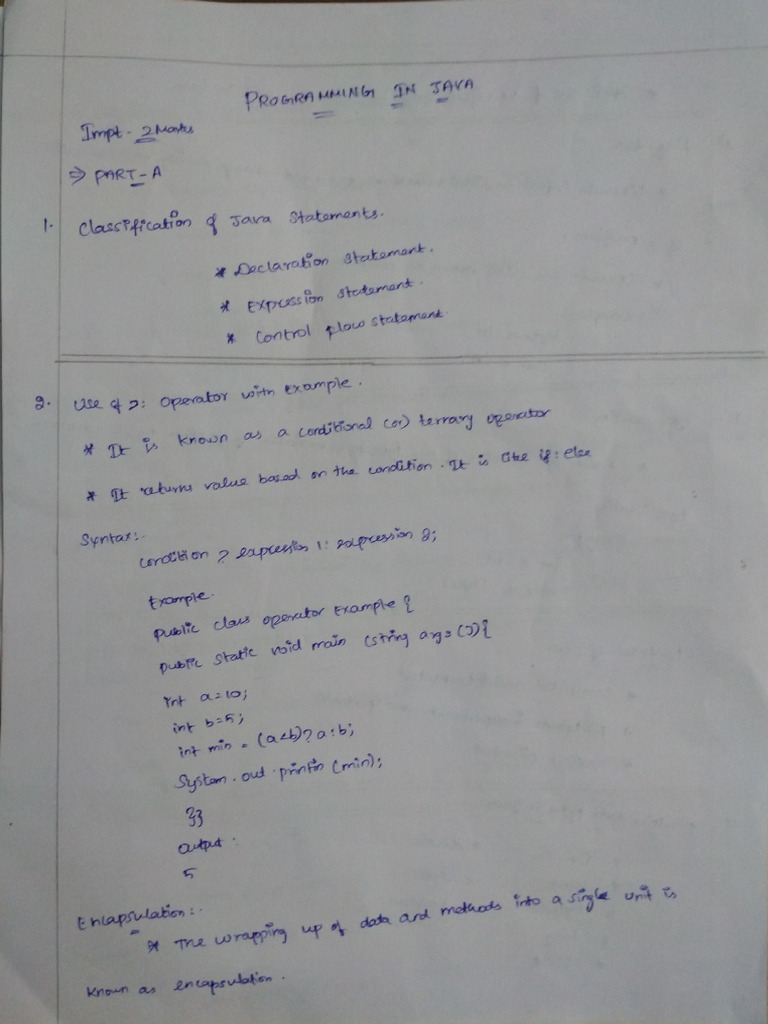 PROGRAMMING IN JAVA
Impt - 2 Marks
⇒ PART-A
1. Classification of Java Statements.
* Declaration Statement.
* Expression Statement.
* Control flow statement
2. Use of ?: Operator with Example.
* It is known as a conditional (or) ternary operator
* It returns value based on the condition. It is like if: else
Syntax:-
condition ? expression 1: expression 2;
Example.
public class operator Example {
public static void main (string args []) {
int a=10;
int b=5;
int min = (a<b)? a:b;
System.out.println (min);
}}
output.
5
Encapsulation:-
* The wrapping up of data and methods into a single unit is
known as encapsulation.